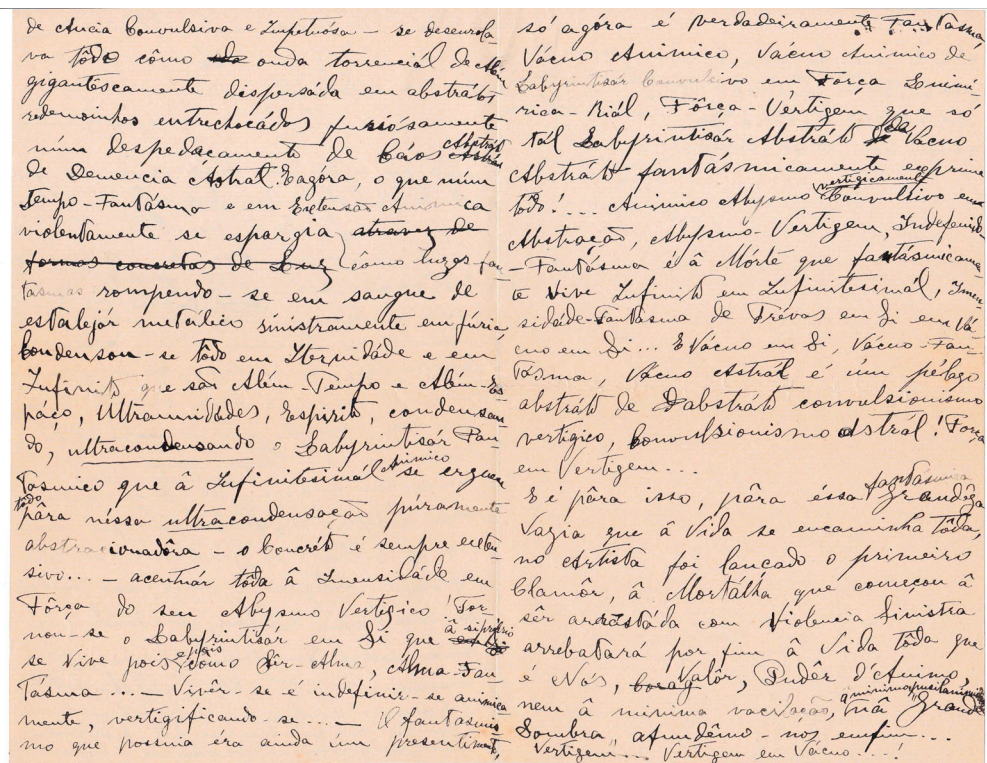 de Ancia Convulsiva e Impetuósa - se desenrola
va tôdo cômo onda torrencial de Além
gigantêscamente dispersáda em abstrátos
redemoinhos entrechocádos furiósamente
núm despedaçamento de Cáos Abstráto
de Demencia Astral. E agóra, o que núm
Tempo-Fantásma e em Extensão Animica
violentamente se espargia atravez de
formas concretas de Luz cômo luzes fan
tasmas rompendo-se em sangue de
estalejár metálico sinistramente em fúria,
Condensou-se tôdo em Iternidáde e em
Infinito que são Além-Tempo e Além-Es
páço, Ultraunidádes, Espirito, condensan
do, ultracondensando o Labyrintisár Fan
Tásmico que â Infinitesimál Animico se ergueu
tôdo pâra néssa ultracondensação púramente
abstracionadôra - o Concréto é sempre exten
sivo... - acentuár tôda â Imensidáde em
Fôrça do seu Abysmo Vertigico! Tor
nou-se o Labyrintisár em Si que â si próprio
se Vive pois é pois cômo Sêr-Alma, Alma-Fan
Tásma... - Vivêr-se é indefinir-se animica
mente, vertigificando-se... - O fantasmis
mo que possuia éra ainda úm presentimento,
só agóra é verdadeiramente Fantásma,
Vácuo Animico, Vácuo Animico de
Labyrintisár Convulsivo em Fôrça
Fôrça-Vértigem que só
tál Labyrintisár Abstráto de Vácuo
Abstráto fantásmicamente exprime
tôdo!... Animico Abysmo vertigicamente Convulsivo em
Abstração, Abysmo-Vertigem, Indefenido
-Fantásma é â Mórte que fantásmicamen
te Vive Infinito em Infinitesimál, Imen
sidáde-Fantásma de Trévas em Si em Vá
cuo em Si... E Vácuo em Si, Vácuo-Fan
Tásma, Vácuo Astrál é úm pélago
abstráto de convulsionismo
vertigico, Convulsionismo Astrál! Fôrça
em Vertigem...
E é pâra isso, pâra éssa fantásmica Grandêza
Vazia que â Vida se encaminha tôda,
no Artista foi lançado o primeiro
Clamôr, â Mortálha que começou â
sêr arrastáda com Violencia Sinistra
arrebatará por fim â Vida tôda que
é Nós, Valôr, Pudêr d'Animo,
nem â minima vacilação, â minima pusilanimidade nâ Grande
Sombra, afundêmo-nos emfim...
Vertigem... Vertigem em Vácuo...!